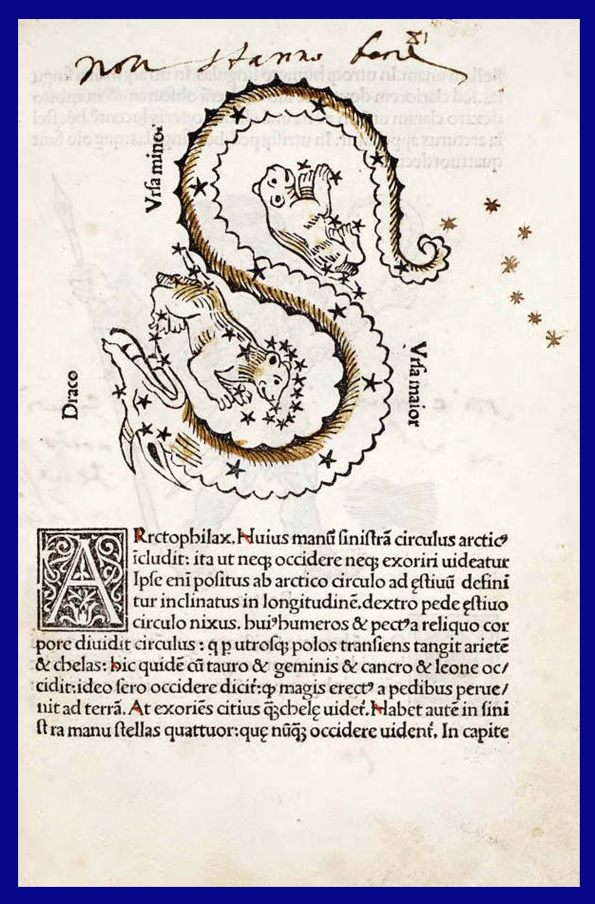 non stanno bene
Vrſa minor
Vrſa maior
Draco
ARrctophilax. Huius manū ſiniſtrā circulus arcticꝰ
īcludit: ita ut neqꝫ occidere neqꝫ exoriri uideatur
Ipſe eni poſitus ab arctico circulo ad ęſtiuū defini
tur inclinatus in longitudinē. dextro pede ęſtiuo
circulo nixus. huiꝰ humeros & pectꝰ a reliquo cor
pore diuidit circulus : q p utroſqꝫ polos tranſiens tangit arietē
& chelas: hic quidē cū tauro & geminis & cancro & leone oc/
cidit: ideo ſero occidere dicit̃: qꝫ magis erectꝰ a pedibus perue/
nit ad terrā. At exoriēs citius q̄ꝫ chelę uidet̃. Habet autē in ſini
ſtra manu ſtellas quattuor: quę nūqꝫ occidere uident̃. In capite